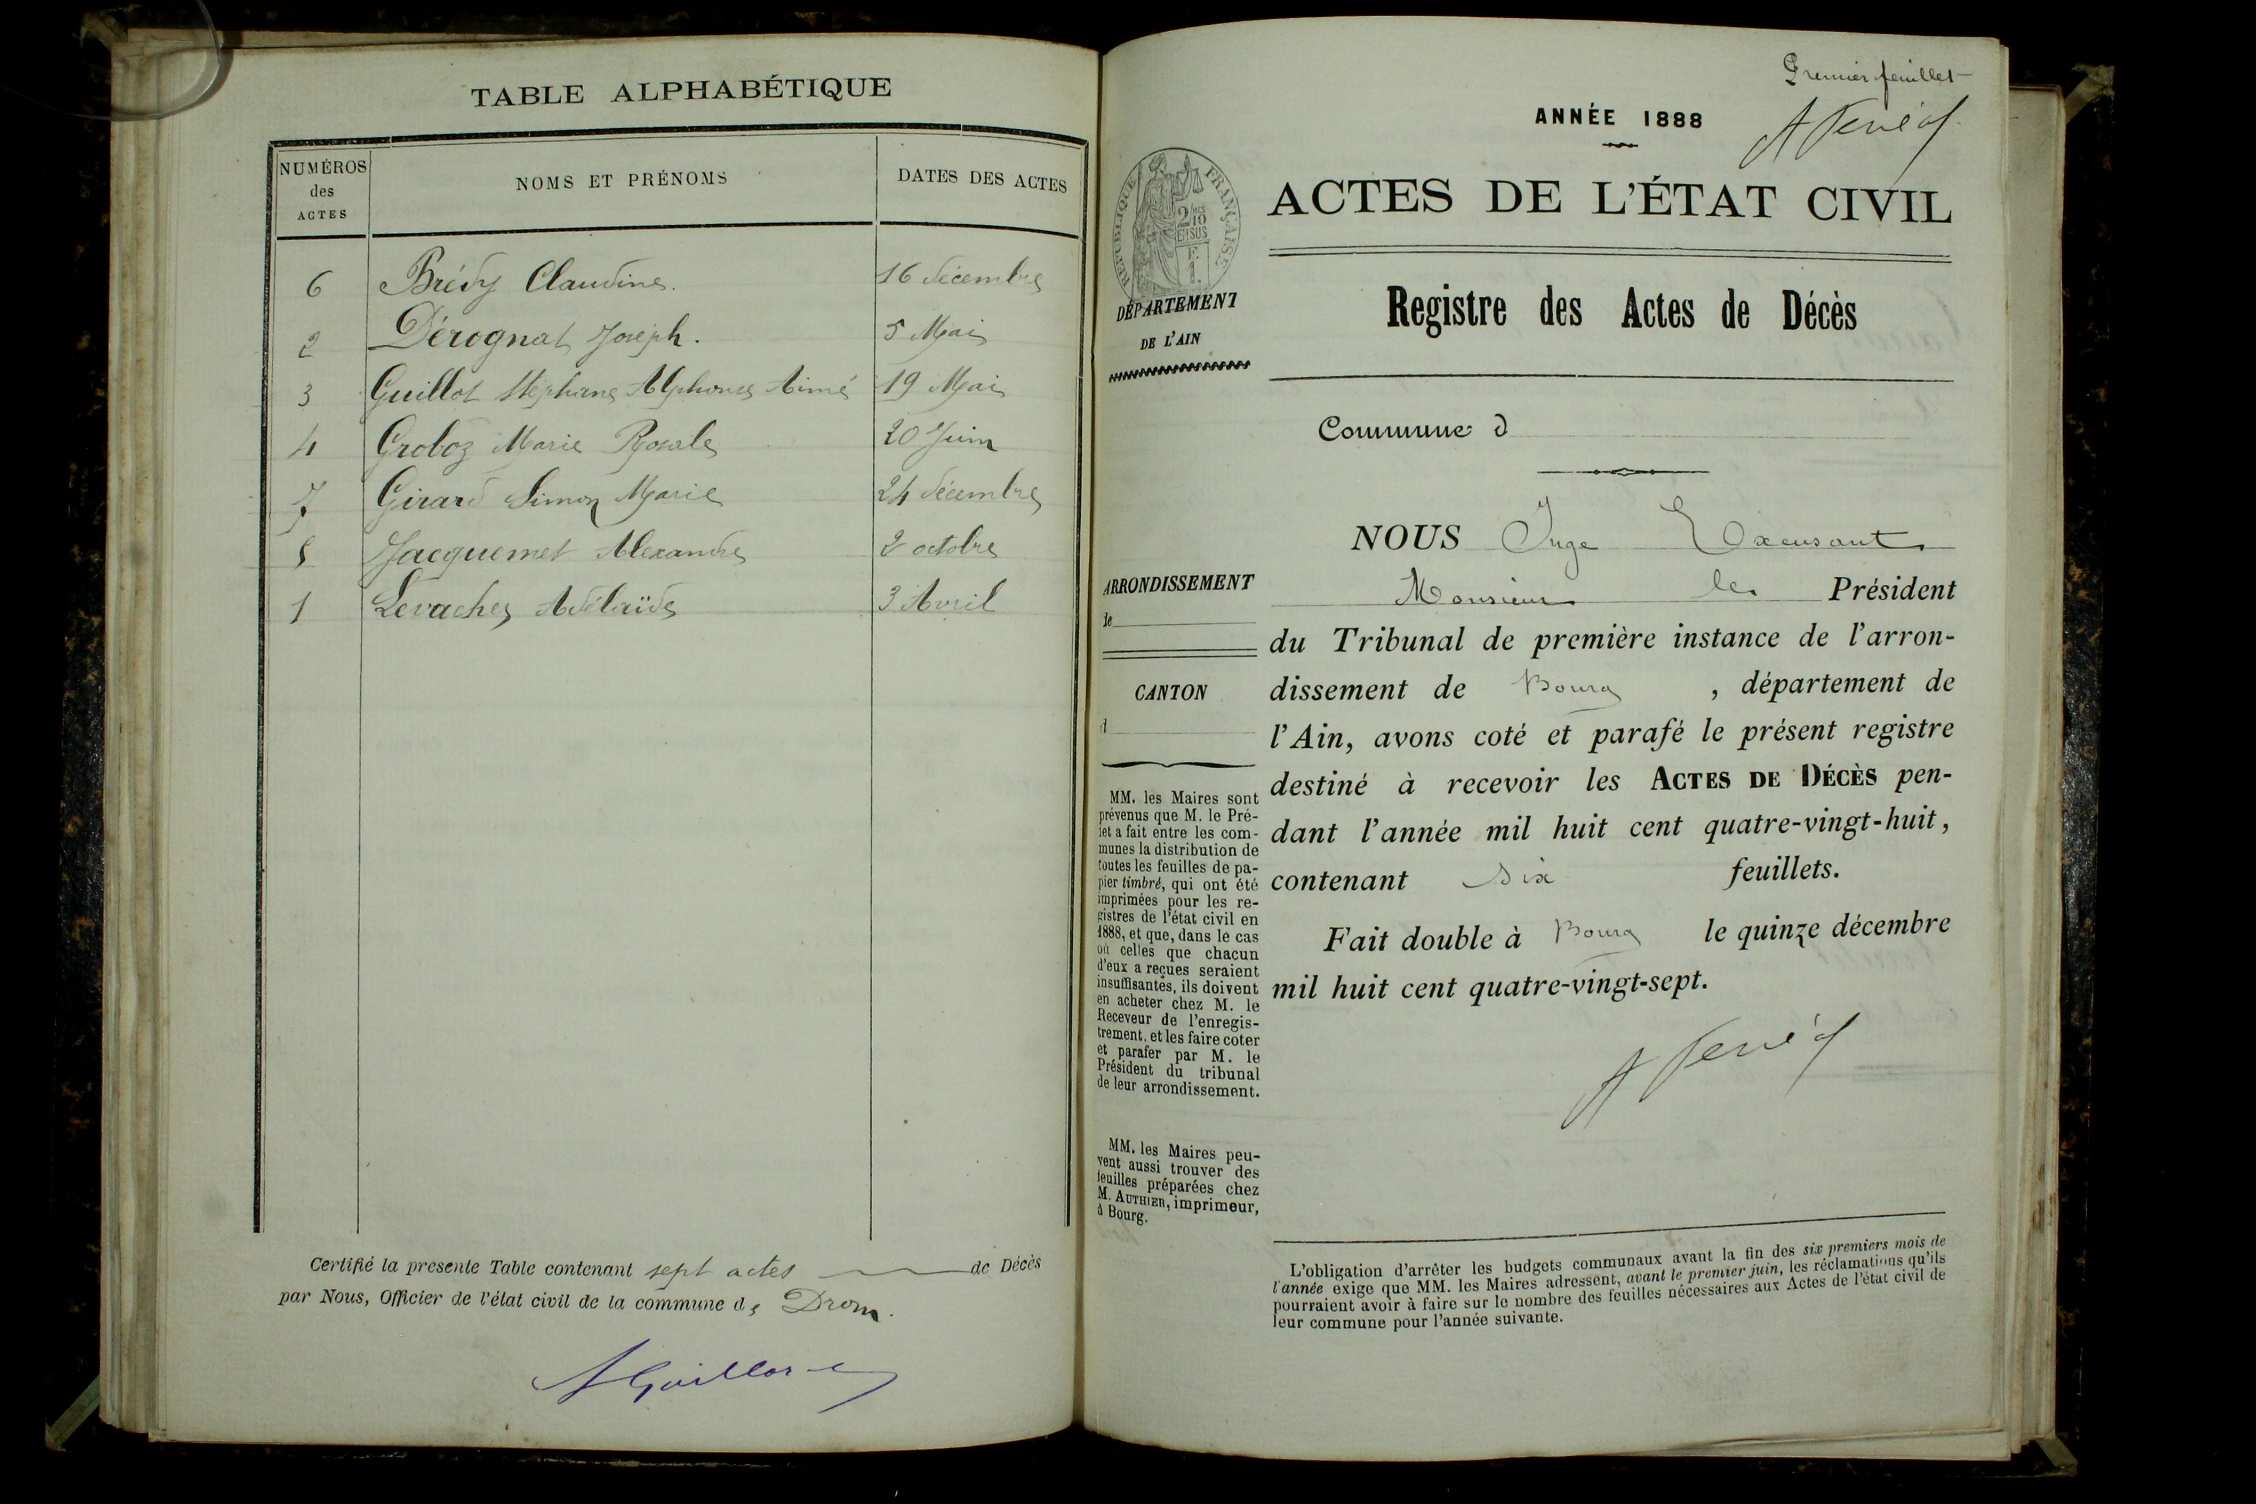 TABLE ALPHABÉTIQUE
NUMÉROS des ACTES
NOMS ET PRÉNOMS
DATES DES ACTES
6 Brédy Claudine. 16 décembre
2 Dérognat Joseph. 5 Mai
3 Guillot Stéphane Alphonse Aimé 19 Mai
4 Groboz Marie Rosale 20 Juin
7 Girard Simon Marie 24 décembre
5 Jacquemet Alexandre 2 octobre
1 Levacher Adélaïde 3 Avril
Certifié la presente Table contenant sept actes de Décès
par Nous, Officier de l'état civil de la commune de Drom.
Premier feuillet
ANNÉE 1888
ACTES DE L'ÉTAT CIVIL
RÉPUBLIQUE FRANÇAISE
2/10 EN SUS
DÉPARTEMENT
DE L'AIN
Registre des Actes de Décès
Commune d
ARRONDISSEMENT
le
CANTON
d
MM. les Maires sont
prévenus que M. le Pré-
fet a fait entre les com-
munes la distribution de
toutes les feuilles de pa-
pier timbré, qui ont été
imprimées pour les re-
gistres de l'état civil en
1888, et que, dans le cas
où celles que chacun
d'eux a reçues seraient
insuffisantes, ils doivent
en acheter chez M. le
Receveur de l'enregis-
trement, et les faire coter
et parafer par M. le
Président du tribunal
de leur arrondissement.
MM. les Maires peu-
vent aussi trouver des
feuilles préparées chez
M. AUTHIER, imprimeur,
à Bourg.
NOUS Juge Excusant
Monsieur le Président
du Tribunal de première instance de l'arron-
dissement de Bourg, département de
l'Ain, avons coté et parafé le présent registre
destiné à recevoir les ACTES DE DÉCÈS pen-
dant l'année mil huit cent quatre-vingt-huit,
contenant six feuillets.
Fait double à Bourg le quinze décembre
mil huit cent quatre-vingt-sept.
L'obligation d'arrêter les budgets communaux avant la fin des six premiers mois de
l'année exige que MM. les Maires adressent, avant le premier juin, les réclamations qu'ils
pourraient avoir à faire sur le nombre des feuilles nécessaires aux Actes de l'état civil de
leur commune pour l'année suivante.